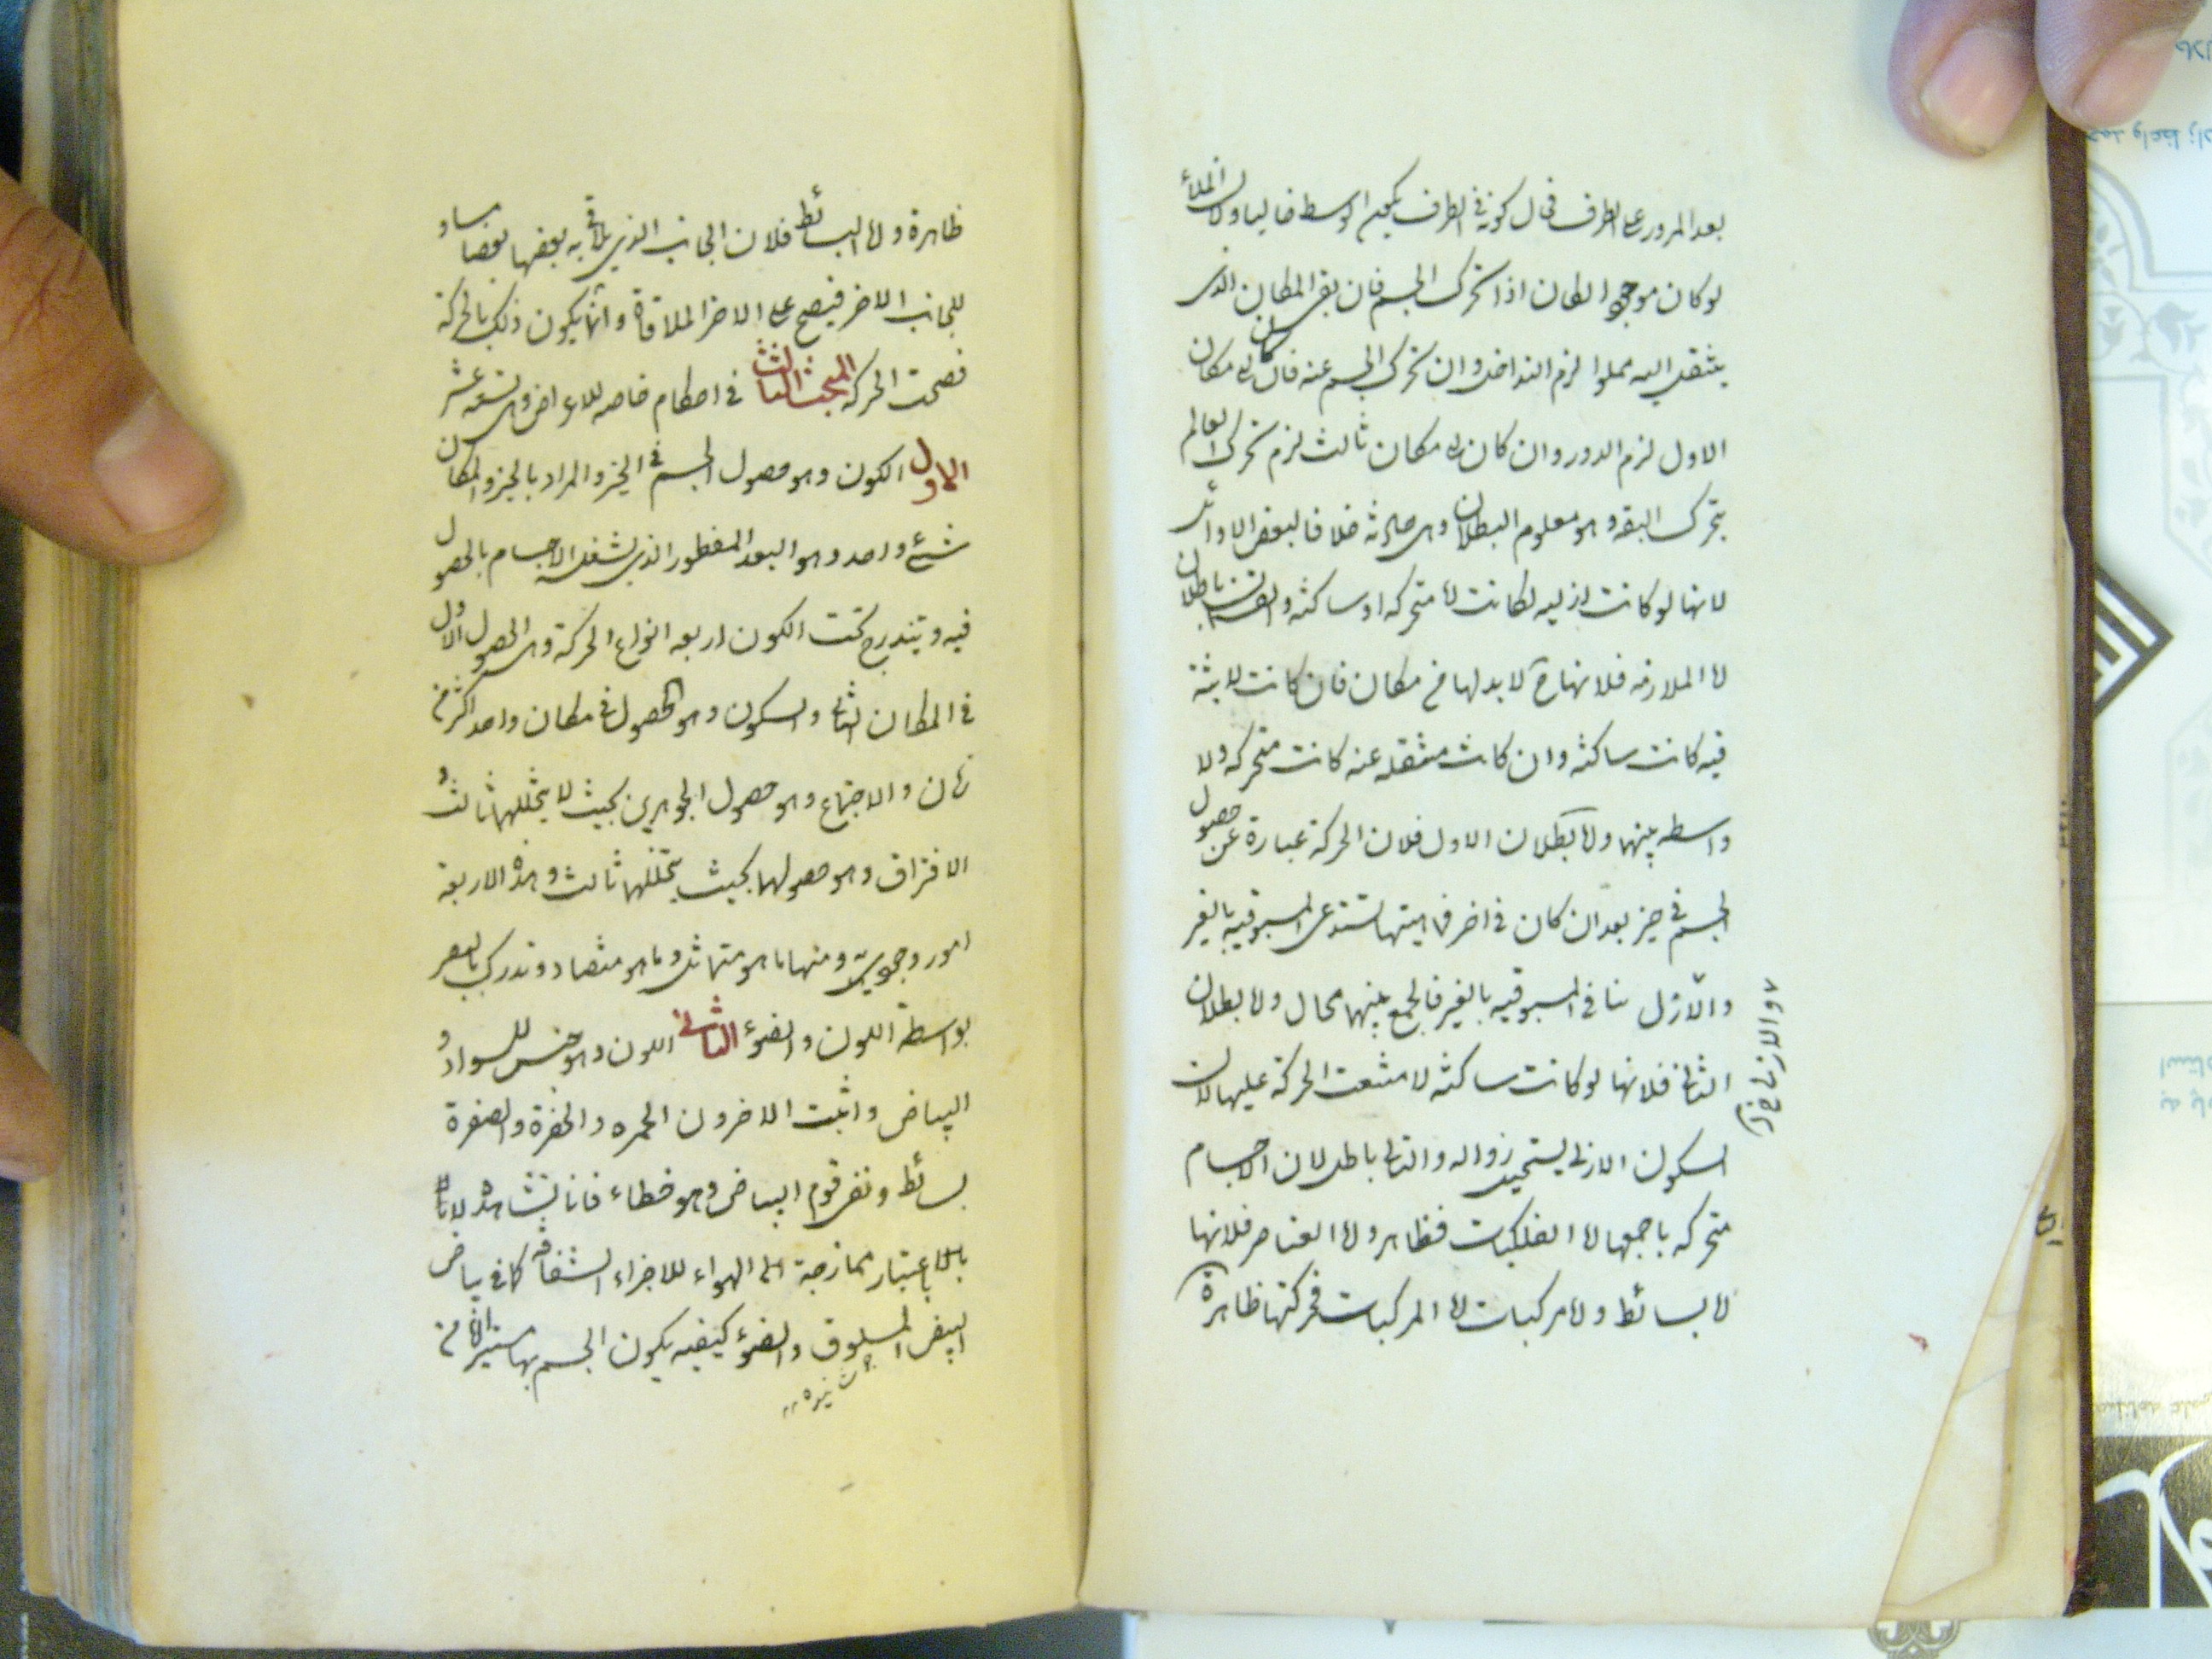 بعد المرور على الطرف فحال كونه في الطرف يكون الوسط خاليا ولان الملأ
لو كان موجودا لكان اذا تحرك الجسم فان بقى المكان الذى
ينتقل اليه مملوا لزم التداخل وان تحرك الجسم عنه فان كان الى مكان
الاول لزم الدور وان كان الى مكان ثالث لزم تحرك العالم
بتحرك البقه وهو معلوم البطلان وهى حادثه خلافا لبعض الاوائل
لانها لو كانت ازليه لكانت اما متحركه او ساكنه والقسمان باطلان
اما الملازمه فلانها ح لا بد لها من مكان فان كانت لابثة
فيه كانت ساكنه وان كانت منتقله عنه كانت متحركه ولا
واسطه بينهما واما بطلان الاول فلان الحركة عبارة عن حصول
الجسم فى حيز بعد ان كان فى اخر فماهيتها تستدعى المسبوقيه بالغير
والازل ينافى المسبوقيه بالغير فالجمع بينهما محال واما بطلان
الثانى فلانها لو كانت ساكنه لامتنعت الحركة عليها لان
السكون الازلى يستحيل زواله والتالى باطل لان الاجسام
متحركه باجمعها اما الفلكيات فظاهر واما العناصر فلانها
اما بسائط واما مركبات اما المركبات فحركتها ظاهرة
ظاهرة واما البسائط فلان الجانب الذى يلاقى به بعضها بعضا مساو
للجانب الاخر فيصح على الاخر الملاقاة وانما يكون ذلك بالحركة
فصحت الحركه المبحث الثالث فى احكام خاصه للاعراض وهى تسعه عشر
الاول الكون وهو حصول الجسم فى الحيز والمراد بالحيز والمكان
شئ واحد وهو البعد المفطور الذى يشغله الاجسام بالحصول
فيه ويندرج تحت الكون اربعه انواع الحركة وهى الحصول الاول
فى المكان الثانى والسكون وهو الحصول فى مكان واحد اكثر من
زمان والاجتماع وهو حصول الجوهرين بحيث لا يتخللهما ثالث و
الافتراق وهو حصولهما بحيث يتخللهما ثالث وهذه الاربعة
امور وجوديه ومنها ما هو متماثل وما هو متضاد وتدرك بالبصر
بواسطة اللون والضوء الثانى اللون وهو جنس للسواد و
البياض واثبت الاخرون الحمره والخضرة والصفرة
بسائط ونفى قوم البياض وهو خطاء فانا نشاهده لا
باعتبار ممازجة الهواء للاجزاء الشفافه كما فى بياض
البيض المسلوق والضوء كيفيه يكون الجسم بها مستنيرا من